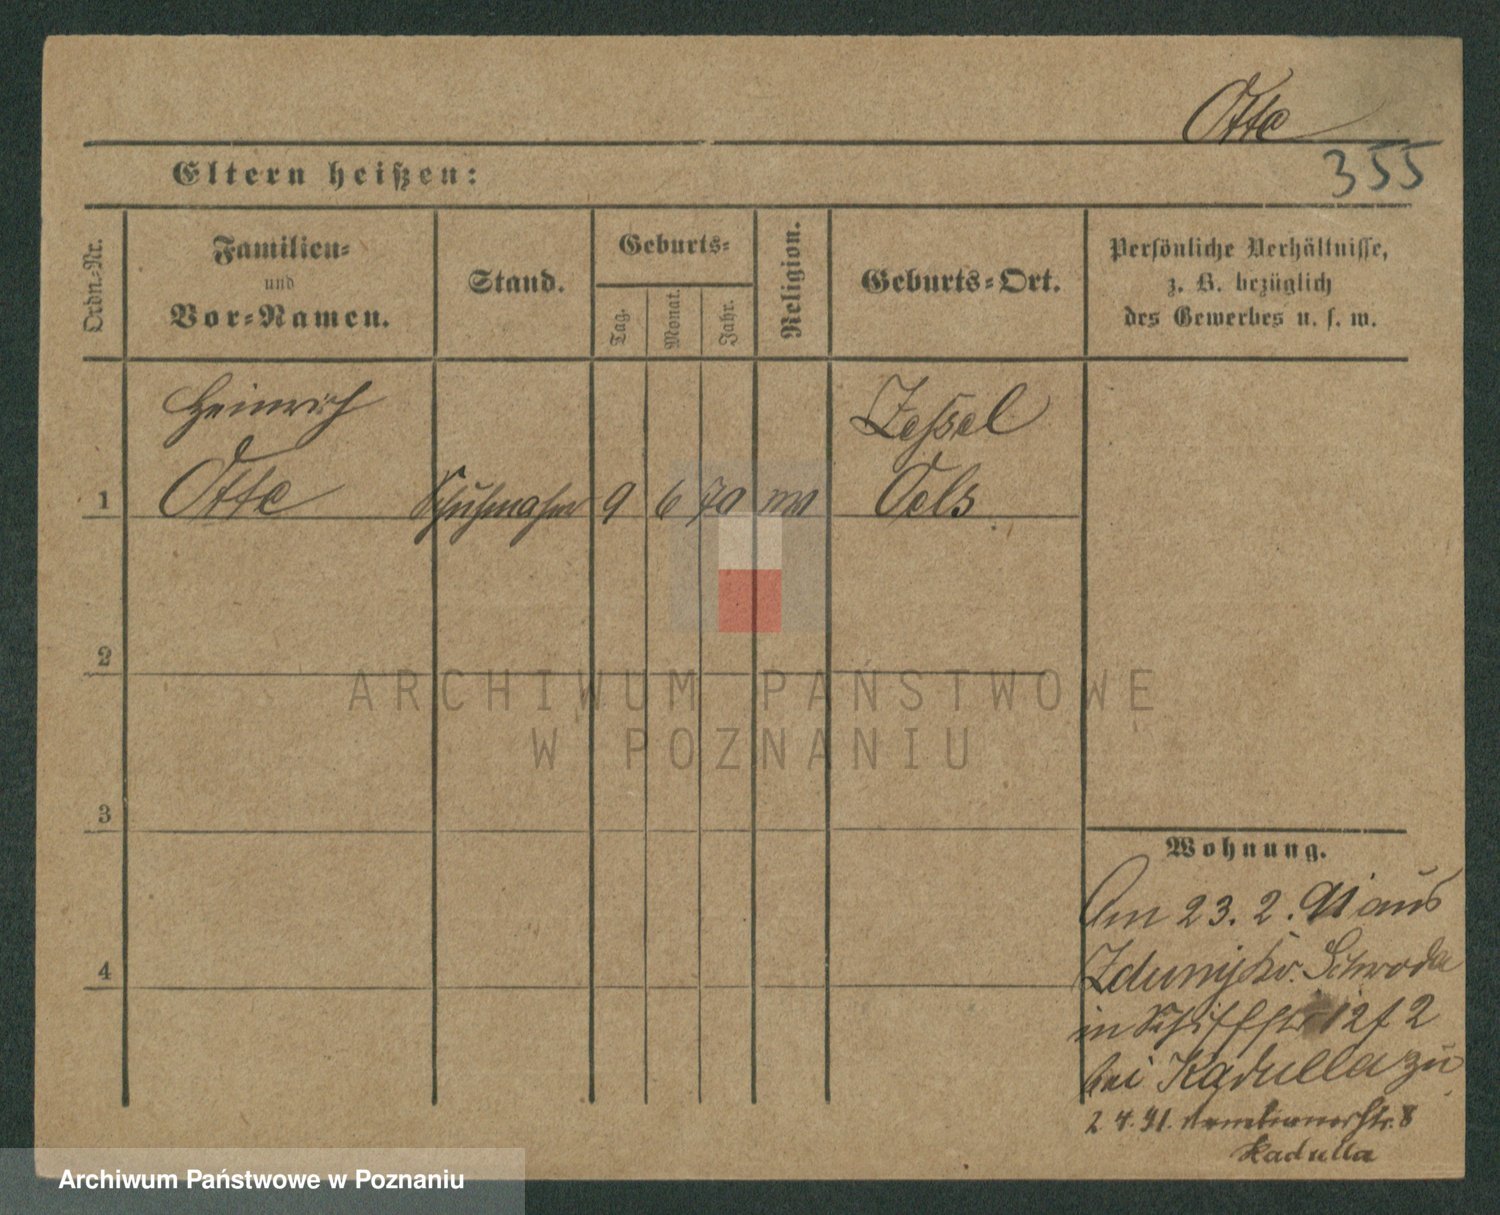 Otto
355
Eltern heißen:
Ordn.-Nr.
Familien-
und
Vor-Namen.
Stand.
Geburts-
Tag.
Monat.
Jahr.
Religion.
Geburts-Ort.
Persönliche Verhältnisse,
z. B. bezüglich
des Gewerbes u. s. w.
Heinrich
Zessel
1 Otto Schuhmacher 9 6 70 Oels
2
3
4
Wohnung.
Am 23. 2. 91 aus
Zduny Kr. Schroda
in 12 2
bei Kadulla zu
2 4. 91. str. 8
Kadulla
ARCHIWUM PAŃSTWOWE
W POZNANIU
Archiwum Państwowe w Poznaniu